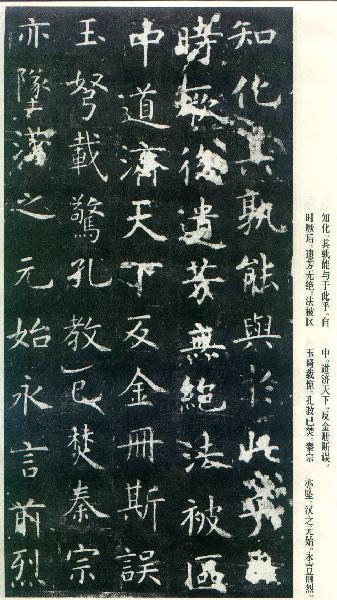 知化其孰能與於此乎自
時厥後遺芳無絕法被區
中道濟天下反金冊斯誤
玉弩載驚孔教已焚秦宗
亦墜漢之元始永言前烈
知化。其孰能与于此乎。自
时厥后。遗芳无绝。法被区
中。道济天下。反金册斯误。
玉弩载惊。孔教已焚。秦宗
亦坠。汉之元始。永言前烈。